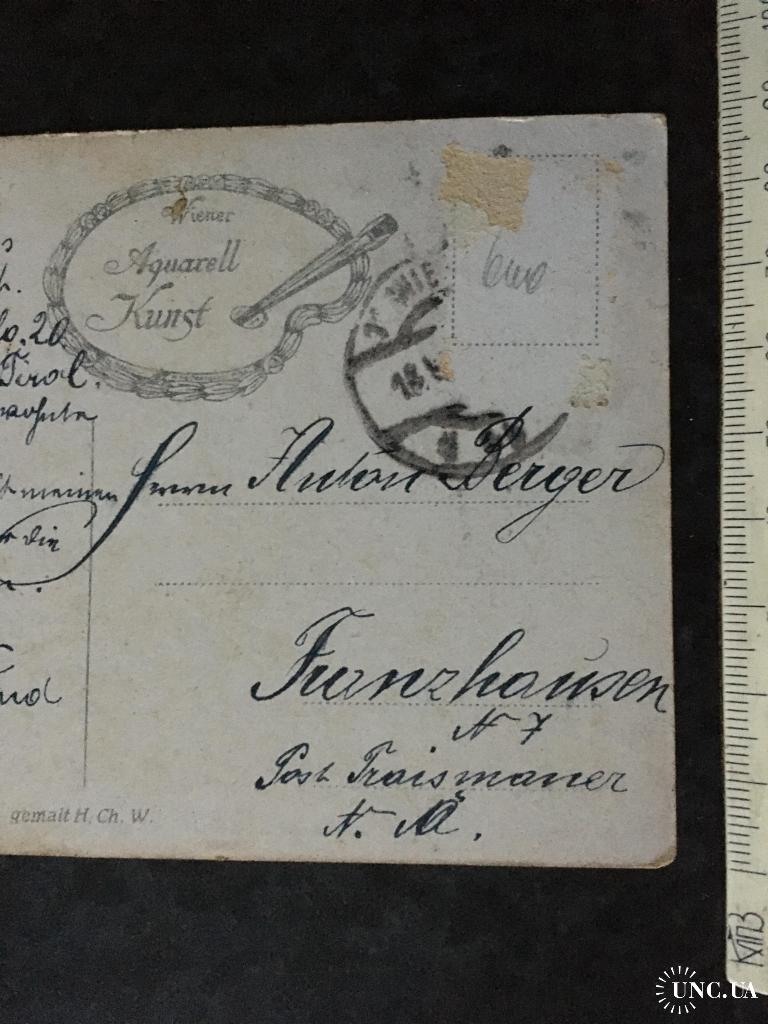 Wiener
Aquarell
Kunst
WIE
18.
6llo
20
Tirol.
wohnte
meinen
die
Herrn Anton Berger
Franzhausen
N 7
Post Traismauer
N. Ö.
gemalt H. Ch. W.
UNC.UA